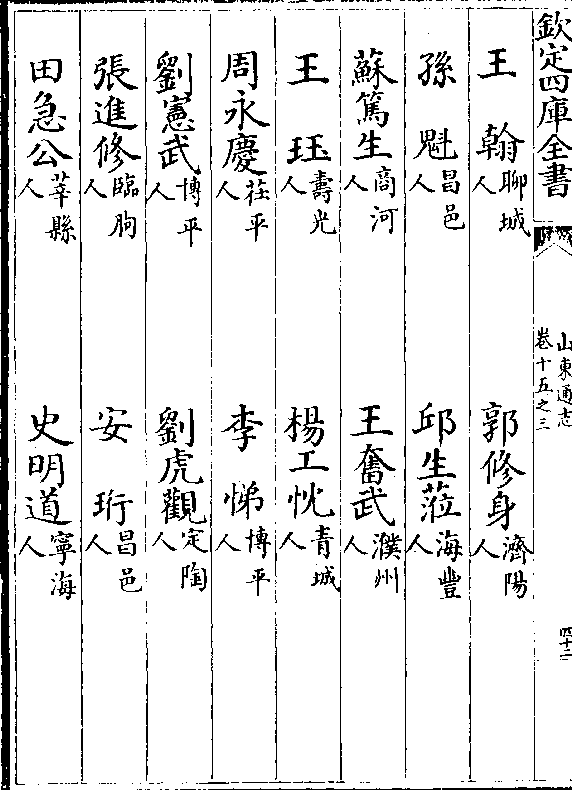 欽定四庫全書
山東通志
卷十五之三
四十二
王翰聊城人
郭修身濟陽人
孫魁昌邑人
邱生蒞海豐人
蘇篤生商河人
王奮武濮州人
王珏壽光人
楊工忱青城人
周永慶茌平人
李悌博平人
劉憲武博平人
劉虎觀定陶人
張進修臨朐人
安珩昌邑人
田急公莘縣人
史明道寧海人